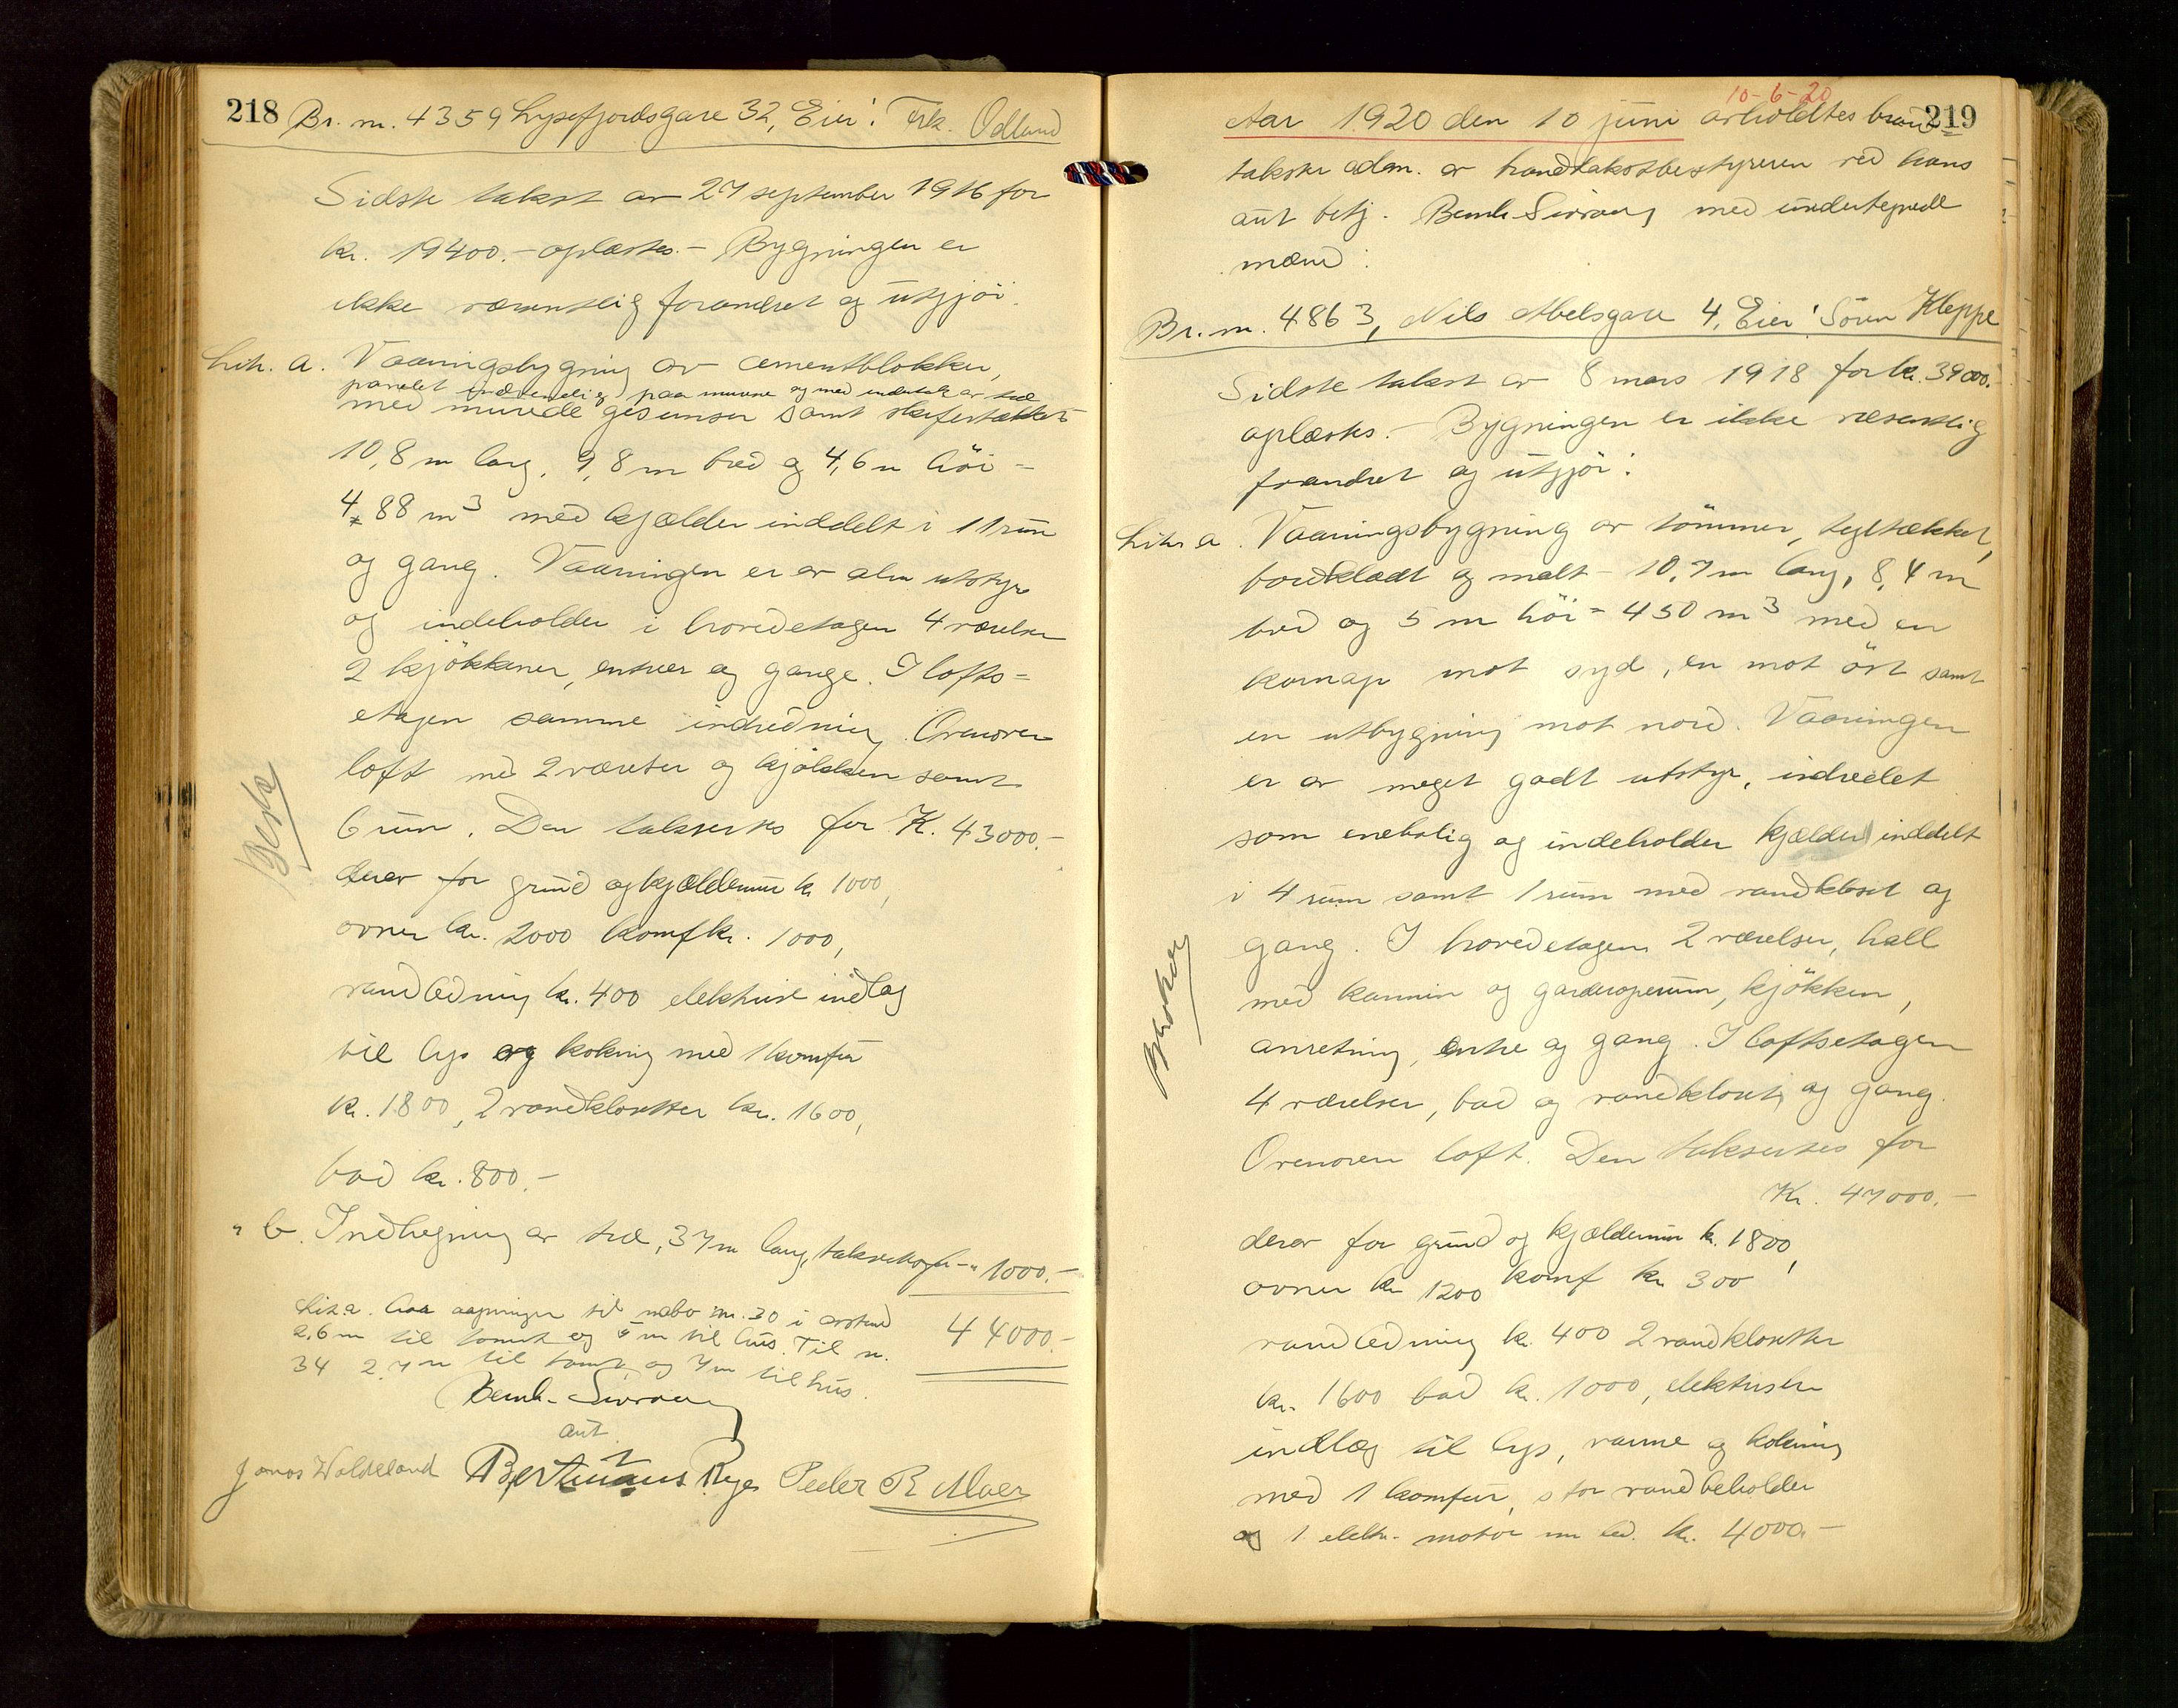 218 Br. nr. 4359 Lysefjordsgate 32, Eier: Frk. Odland
Sidste takst av 27 september 1916 for
kr. 19400.- oplæstes.- Bygningen er
ikke væsentlig forandret og utgjør.
Litr. a. Vaaningsbygning av cementblokker,
panelet indvendig paa murene og med indertak av træ
med murede gesimser samt skifertækket
10,8 m lang, 9,8 m bred og 4,6 m höi =
488 m3 med kjælder inddelt i 11 rum
og gang. Vaaningen er av alm utstyr
og indeholder i hovedetagen 4 værelser
2 kjökkener, entreer og gange. I lofts=
etagen samme indredning. Ovenover
loft med 2 værelser og kjökken samt
6 rum. Den takseres for K. 43000.-
derav for grund og kjældermur kr 1000,
ovner kr. 2000 komf kr. 1000,
vandledning kr. 400 elektrisk indlag
til lys og koking med 1 komfur
kr. 1800, 2 vandklosetter kr. 1600,
bad kr. 800.-
" b. Indhegning av træ, 37 m lang, takseres for - " 1000.-
Lit a. har aapninger til nabo nr. 30 i avstand
2,6 m til tomt og 5 m til hus. Til nr.
34 2,7 m til tomt og 7 m til hus.
44000.-
Bernh. Sivraas
aut
Jonas Waldeland Bertinius Rege Peder R Moer
Beste
10-6-20
Aar 1920 den 10 juni avholdtes brand= 219
takster adm. av brandtakstbestyreren ved hans
aut betj. Bernh. Sivraas med undertegnede
mænd:
Br. nr. 4863, Nils Abelsgate 4, Eier: Sören Kleppe
Sidste takst av 8 mars 1918 for kr. 39000.-
oplæstes.- Bygningen er ikke væsentlig
forandret og utgjör:
Litr a. Vaaningsbygning av tömmer, tegltækket,
bordklædt og malt - 10,7 m lang, 8,4 m
bred og 5 m höi = 450 m3 med en
karnap mot syd, en mot öst samt
en utbygning mot nord. Vaaningen
er av meget godt utstyr, indredet
som enebolig og indeholder kjælder inddelt
i 4 rum samt 1 rum med vandkloset og
gang. I hovedetagen 2 værelser, hall
med kamin og garderoperum, kjökken,
anretning, entre og gang. I loftsetagen
4 værelser, bad og vandkloset, og gang.
Ovenover loft. Den takseres for
Kr. 47000.-
derav for grund og kjældermur kr. 1800,
ovner kr 1200 komf kr 300
vandledning kr. 400 2 vandklosetter
kr. 1600 bad kr. 1000, elektriske
indlæg til lys, varme og koking
med 1 komfur, stor vandbeholder
og 1 elektr. motor m led. kr. 4000.-